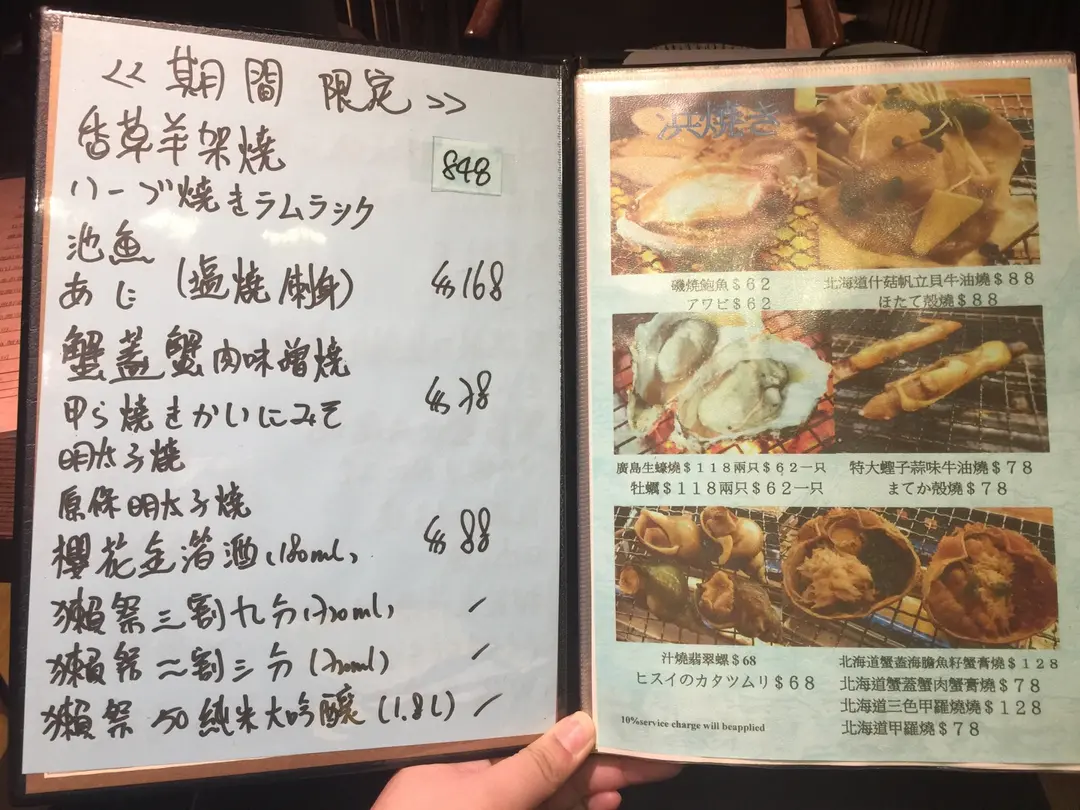 << 期間 限定 >>
香草羊架燒 848
ハーブ焼きラムラック
池魚
あじ (塩燒/刺身) $168
蟹蓋蟹肉味増燒
甲ら焼きかいにみそ $78
明太子燒
原條明太子燒 $88
櫻花金清酒(180ml)
獺祭三割九分(720ml)
獺祭二割三分(720ml)
獺祭 50 純米大吟釀 (1.8L)
浜焼き
磯燒鮑魚$62
アワビ$62
北海道什菇帆立貝牛油燒$88
ほたて殻燒$88
廣島生蠔燒$118兩只$62一只
牡蠣$118兩只$62一只
特大蟶子蒜味牛油燒$78
まてか殻燒$78
汁燒翡翠螺$68
ヒスイのカタツムリ$68
北海道蟹蓋海膽魚籽蟹膏燒$128
北海道蟹蓋蟹肉蟹膏燒$78
北海道三色甲羅燒燒$128
北海道甲羅燒$78
10%service charge will beapplied